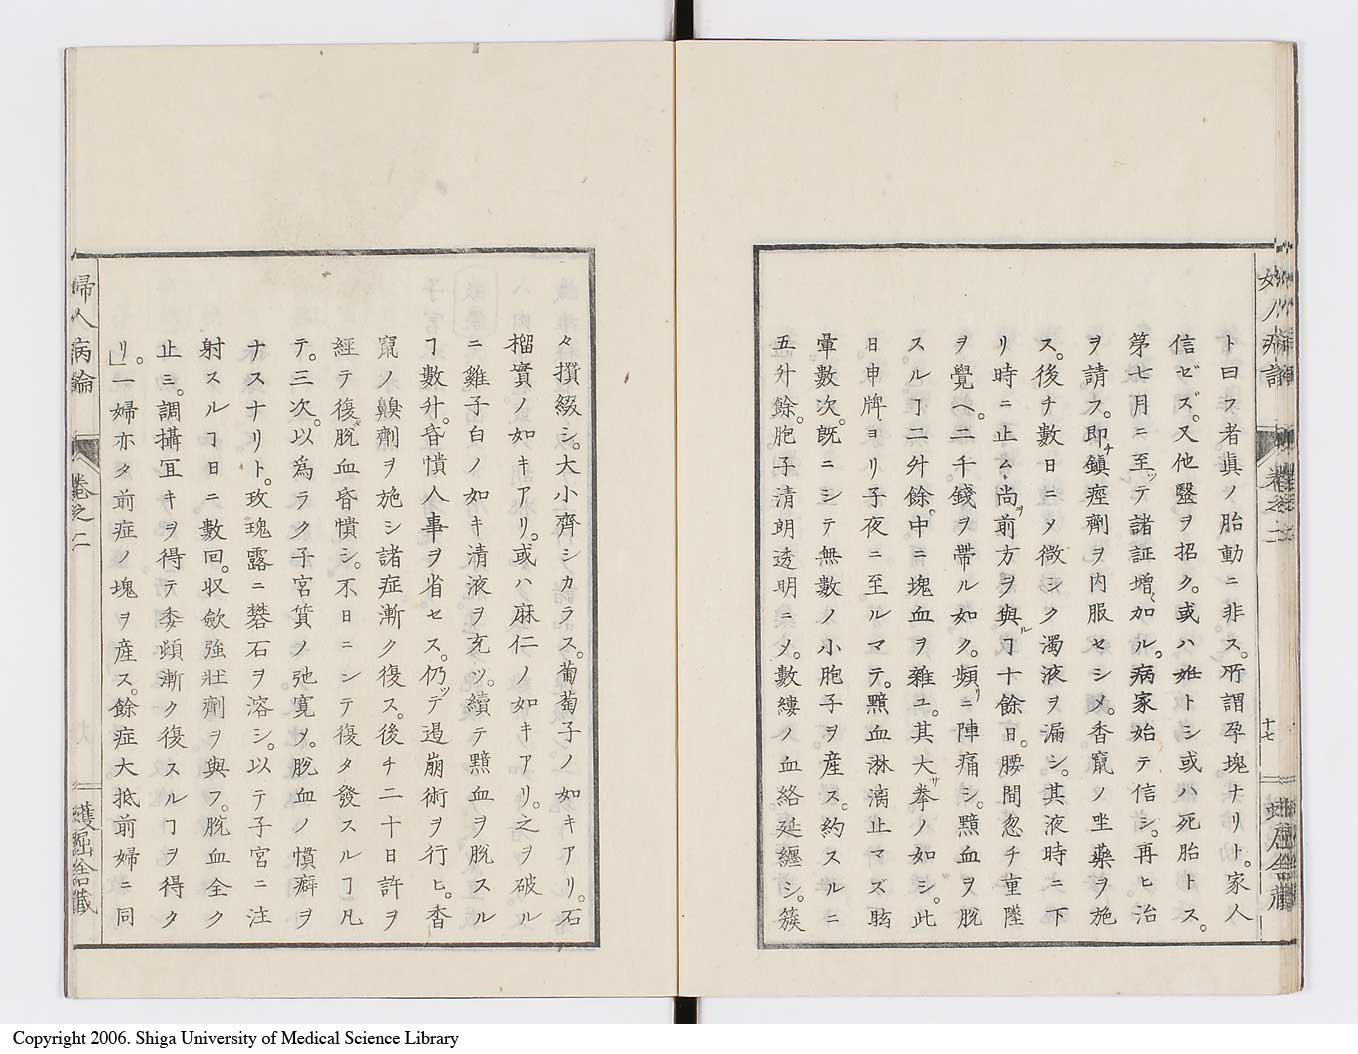 婦人病論
卷之二
十七
蠖屈舎藏
ト曰フ者眞ノ胎動ニ非ス。所謂孕塊ナリト。家人
信ゼズ。又他醫ヲ招ク。或ハ姙トシ或ハ死胎トス。
第七月ニ至ッテ諸証増〻加ル。病家始テ信シ。再ヒ治
ヲ請フ。即チ鎮痙劑ヲ内服セシメ。香竄ノ坐藥ヲ施
ス。後チ數日ニ〆微シク濁液ヲ漏シ。其液時ニ下
リ時ニ止ム。尚ヲ前方ヲ與ルヿ十餘日。腰間忽チ重墜
ヲ覺ヘ。二千錢ヲ帶ル如ク。頻リニ陣痛シ。黯血ヲ脱
スルヿ二升餘。中ニ塊血ヲ雜ユ。其大サ拳ノ如シ。此
日申牌ヨリ子夜ニ至ルマテ。黯血淋漓止マズ眩
暈數次。既ニシテ無數ノ小胞子ヲ産ス。約スルニ
五升餘。胞子清朗透明ニ〆。數縷ノ血絡延纏シ。簇
々攅綴シ。大小齊シカラス。葡萄子ノ如キアリ。石
榴實ノ如キアリ。或ハ麻仁ノ如キアリ。之ヲ破ル
ニ雞子白ノ如キ清液ヲ充ツ。續テ黯血ヲ脱スル
ヿ數升。昏憒人事ヲ省セス。仍ッテ遏崩術ヲ行ヒ。香
竄ノ鼻劑ヲ施シ諸症漸ク復ス。後チ二十日許ヲ
經テ復脱血昏憒シ。不日ニシテ復タ發スルヿ凡
テ。三次。以爲ラク子宮質ノ弛寛〆。脱血ノ慣癖ヲ
ナスナリト。玫瑰露ニ礬石ヲ溶シ。以テ子宮ニ注
射スルヿ日ニ數回。収歛強壯劑ヲ與フ。脱血全ク
止ミ。調攝冝キヲ得テ委頓漸ク復スルヿヲ得タ
リ。」一婦亦タ前症ノ塊ヲ産ス。餘症大抵前婦ニ同
婦人病論
卷之二
蠖屈舎藏
Copyright 2006. Shiga University of Medical Science Library